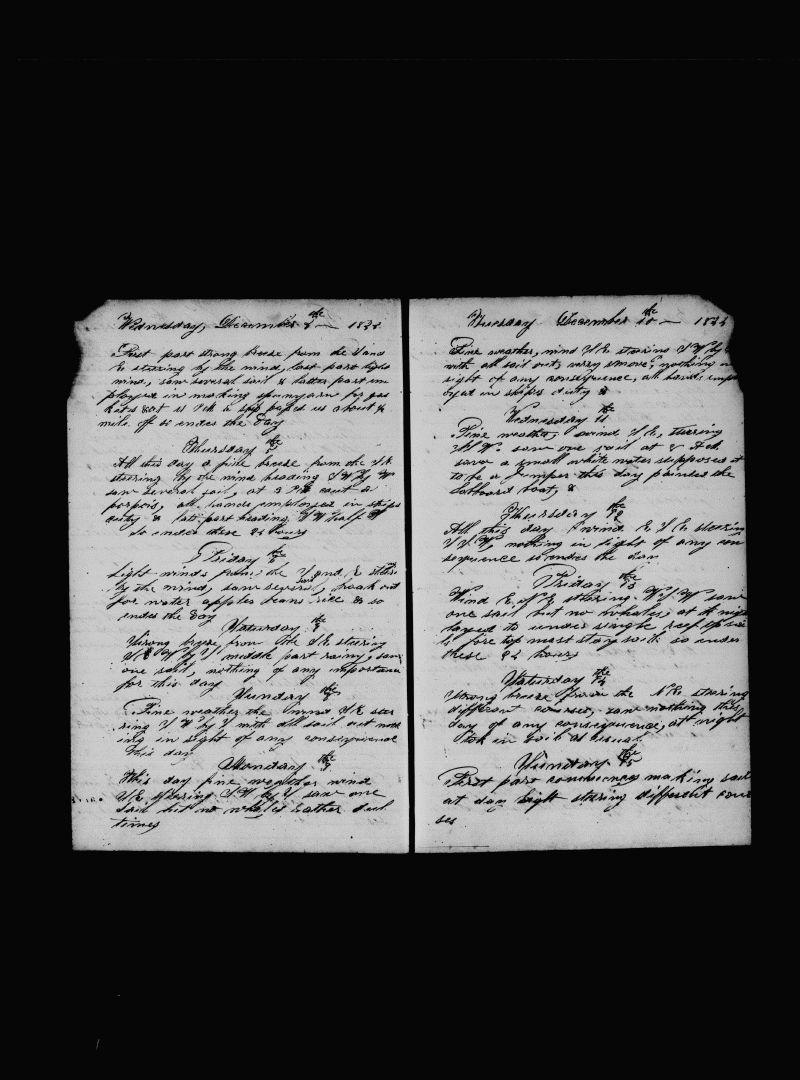 Wednesday, December the 4 — 183
First part strong breese from the S and
E steering by the wind, last part light
wind, saw several sail & latter part em
ployed in making spunyarn for gas
kets at 1 PM a ship passed us about a
mile off so ends the day
Thursday the 5
All this day a fine breese from the S.E
steering by the wind heading S W by W
saw several sail, at 3 PM caut a
porpois, all hands employed in ships
duty & last part heading S W half W
So ends these 24 hours
Friday the 6
Light winds from the S and E steer
by the wind, saw several sail, broak out
for water apples beans rice & so
ends the Day
Saturday the 7
Strong bryze from the S.E steering
S W by S, middle part rainy, saw
one sail, nothing of any importance
for this day
Sunday the 8
Fine weather the wind S.E stee
ring S W by S with all sail out noth
ing in sight of any consequence
this day
Monday the 9
This day fine weather wind
S.E steering S W by S saw one
sail but no whales rather dul
times
Tuesday December the 10 — 183
Fine weather, wind S E stearing S W by
with all sail out, verry smove, nothing in
sight of any consequence, all hands emplo
oyed in ships duty &
Wednesday the 11
Fine weather, wind S.E, steering
S W. saw one sail at 4 PM
saw a small white water supposed it
to be a jumper this day painted the
larboard boat, &
Thursday the 12
All this day wind E S E steering
S S W, nothing in sight of any con
sequence so ends the day
Friday the 13
Wind E. N E stearing W S W saw
one sail but no whales, at night
layed to under single reef topsail
& fore top mast stay sail so ends
these 24 hours
Saturday the 14
Strong breese from the N.E stearing
different courses, saw nothing this
day of any consequence, at night
took in sail as usual
Sunday the 15
First part commences making sail
at day light stearing different cour
ses